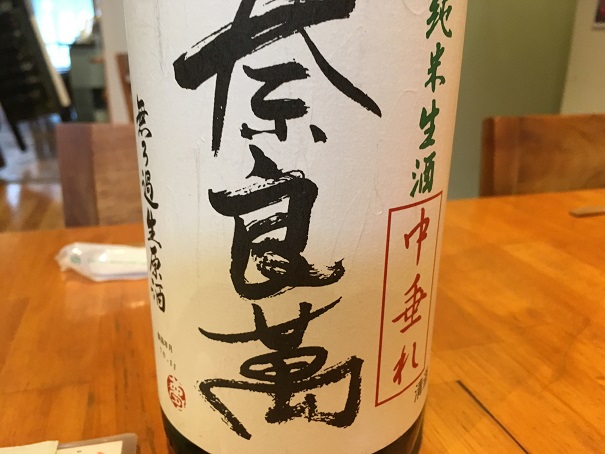 純米生酒
中垂れ
奈良萬
無ろ過生原酒